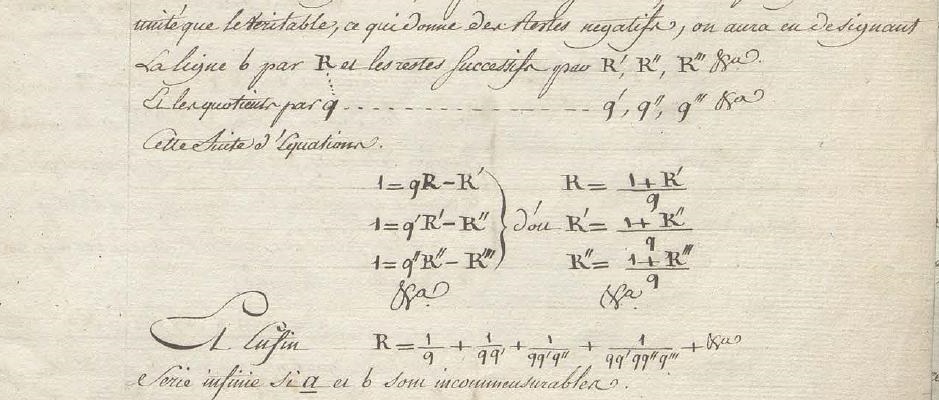 unité que le véritable, ce qui donne des restes negatifs, on aura en designant
La ligne b par R et les restes successifs par R', R'', R''' &a.
Et les quotients par q - - - - - - - - - - q', q'', q''' &a
Cette suite d'Equations.
1 = qR - R' } d'où R = (1 + R')/q
1 = q'R' - R'' R' = (1 + R'')/q
1 = q''R'' - R''' R'' = (1 + R''')/q
&a &a
Et Enfin R = 1/q + 1/qq' + 1/qq'q'' + 1/qq'q''q''' + &a
Serie infinie si a et b sont incommensurables.